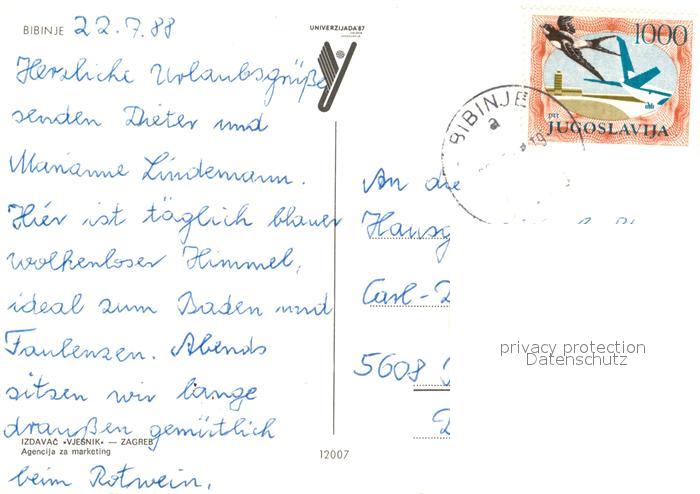 BIBINJE 22.7.88
UNIVERZIJADA'87
Herzliche Urlaubsgrüße
senden Dieter und
Marianne Lindemann.
Hier ist täglich blauer
wolkenloser Himmel,
ideal zum Baden und
Faulenzen. Abends
sitzen wir lange
draußen gemütlich
beim Rotwein.
IZDAVAČ »VJESNIK« — ZAGREB
Agencija za marketing
12007
1000
ptt
JUGOSLAVIJA
BIBINJE
a
An die
Hausg
Carl-
5608
privacy protection
Datenschutz